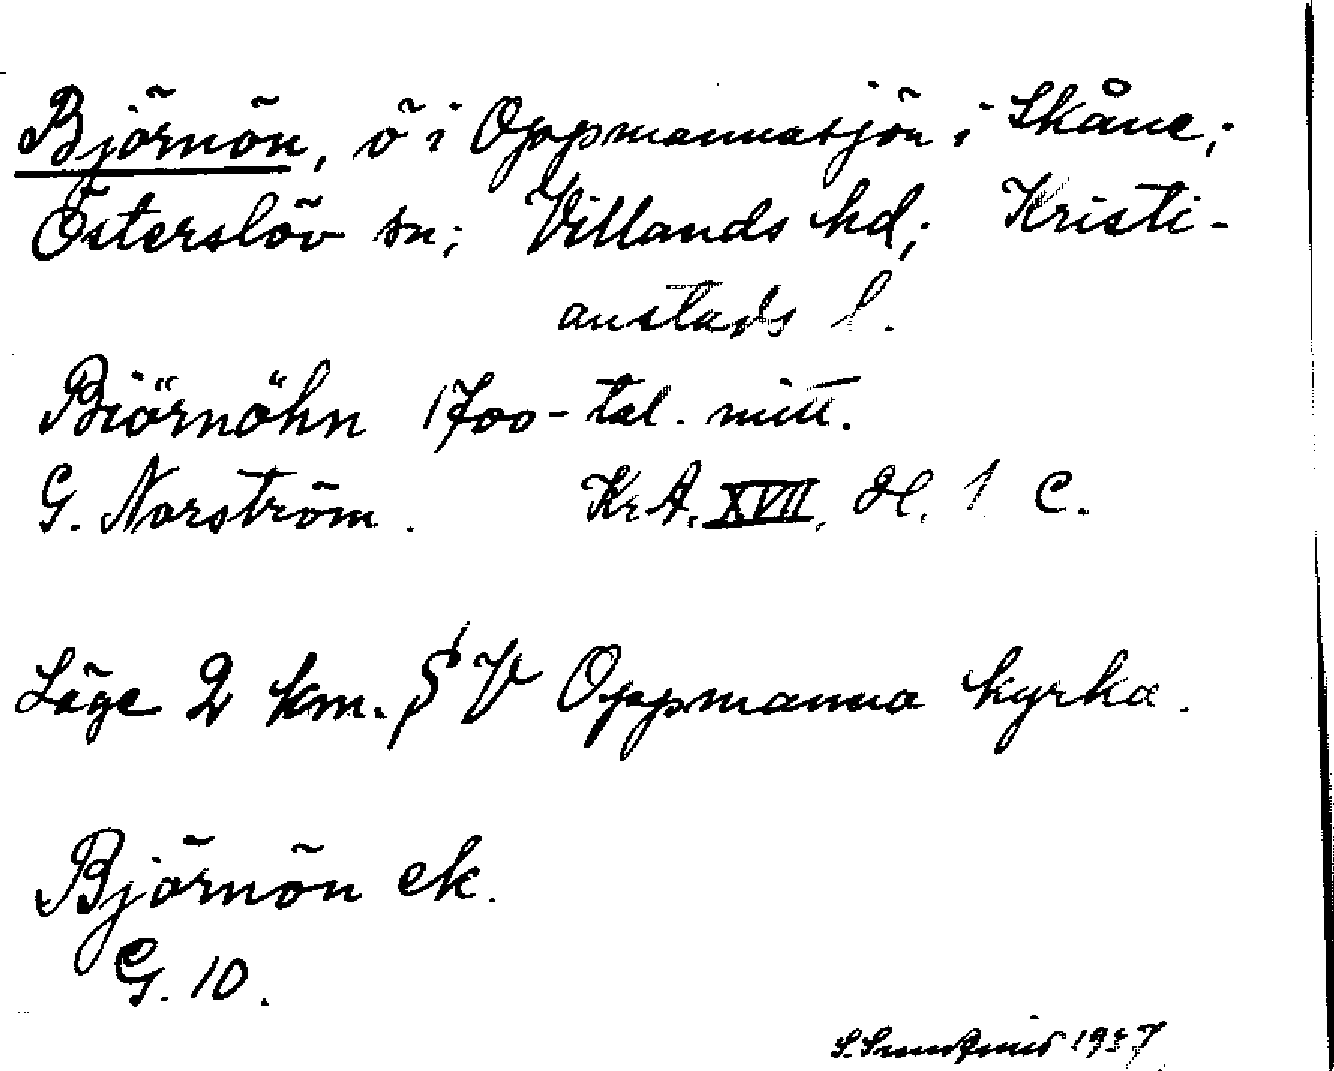 Björnön, ö i Oppmannasjön i Skåne;
Österslöv sn; Villands hd; Kristi-
anstads l.
Biörnöhn 1700-tal. mitt.
G. Norström. Kr. A. XVII, H. 1 C.
Läge 2 km. S V Oppmanna kyrka.
Björnön ek.
G. 10.
1937